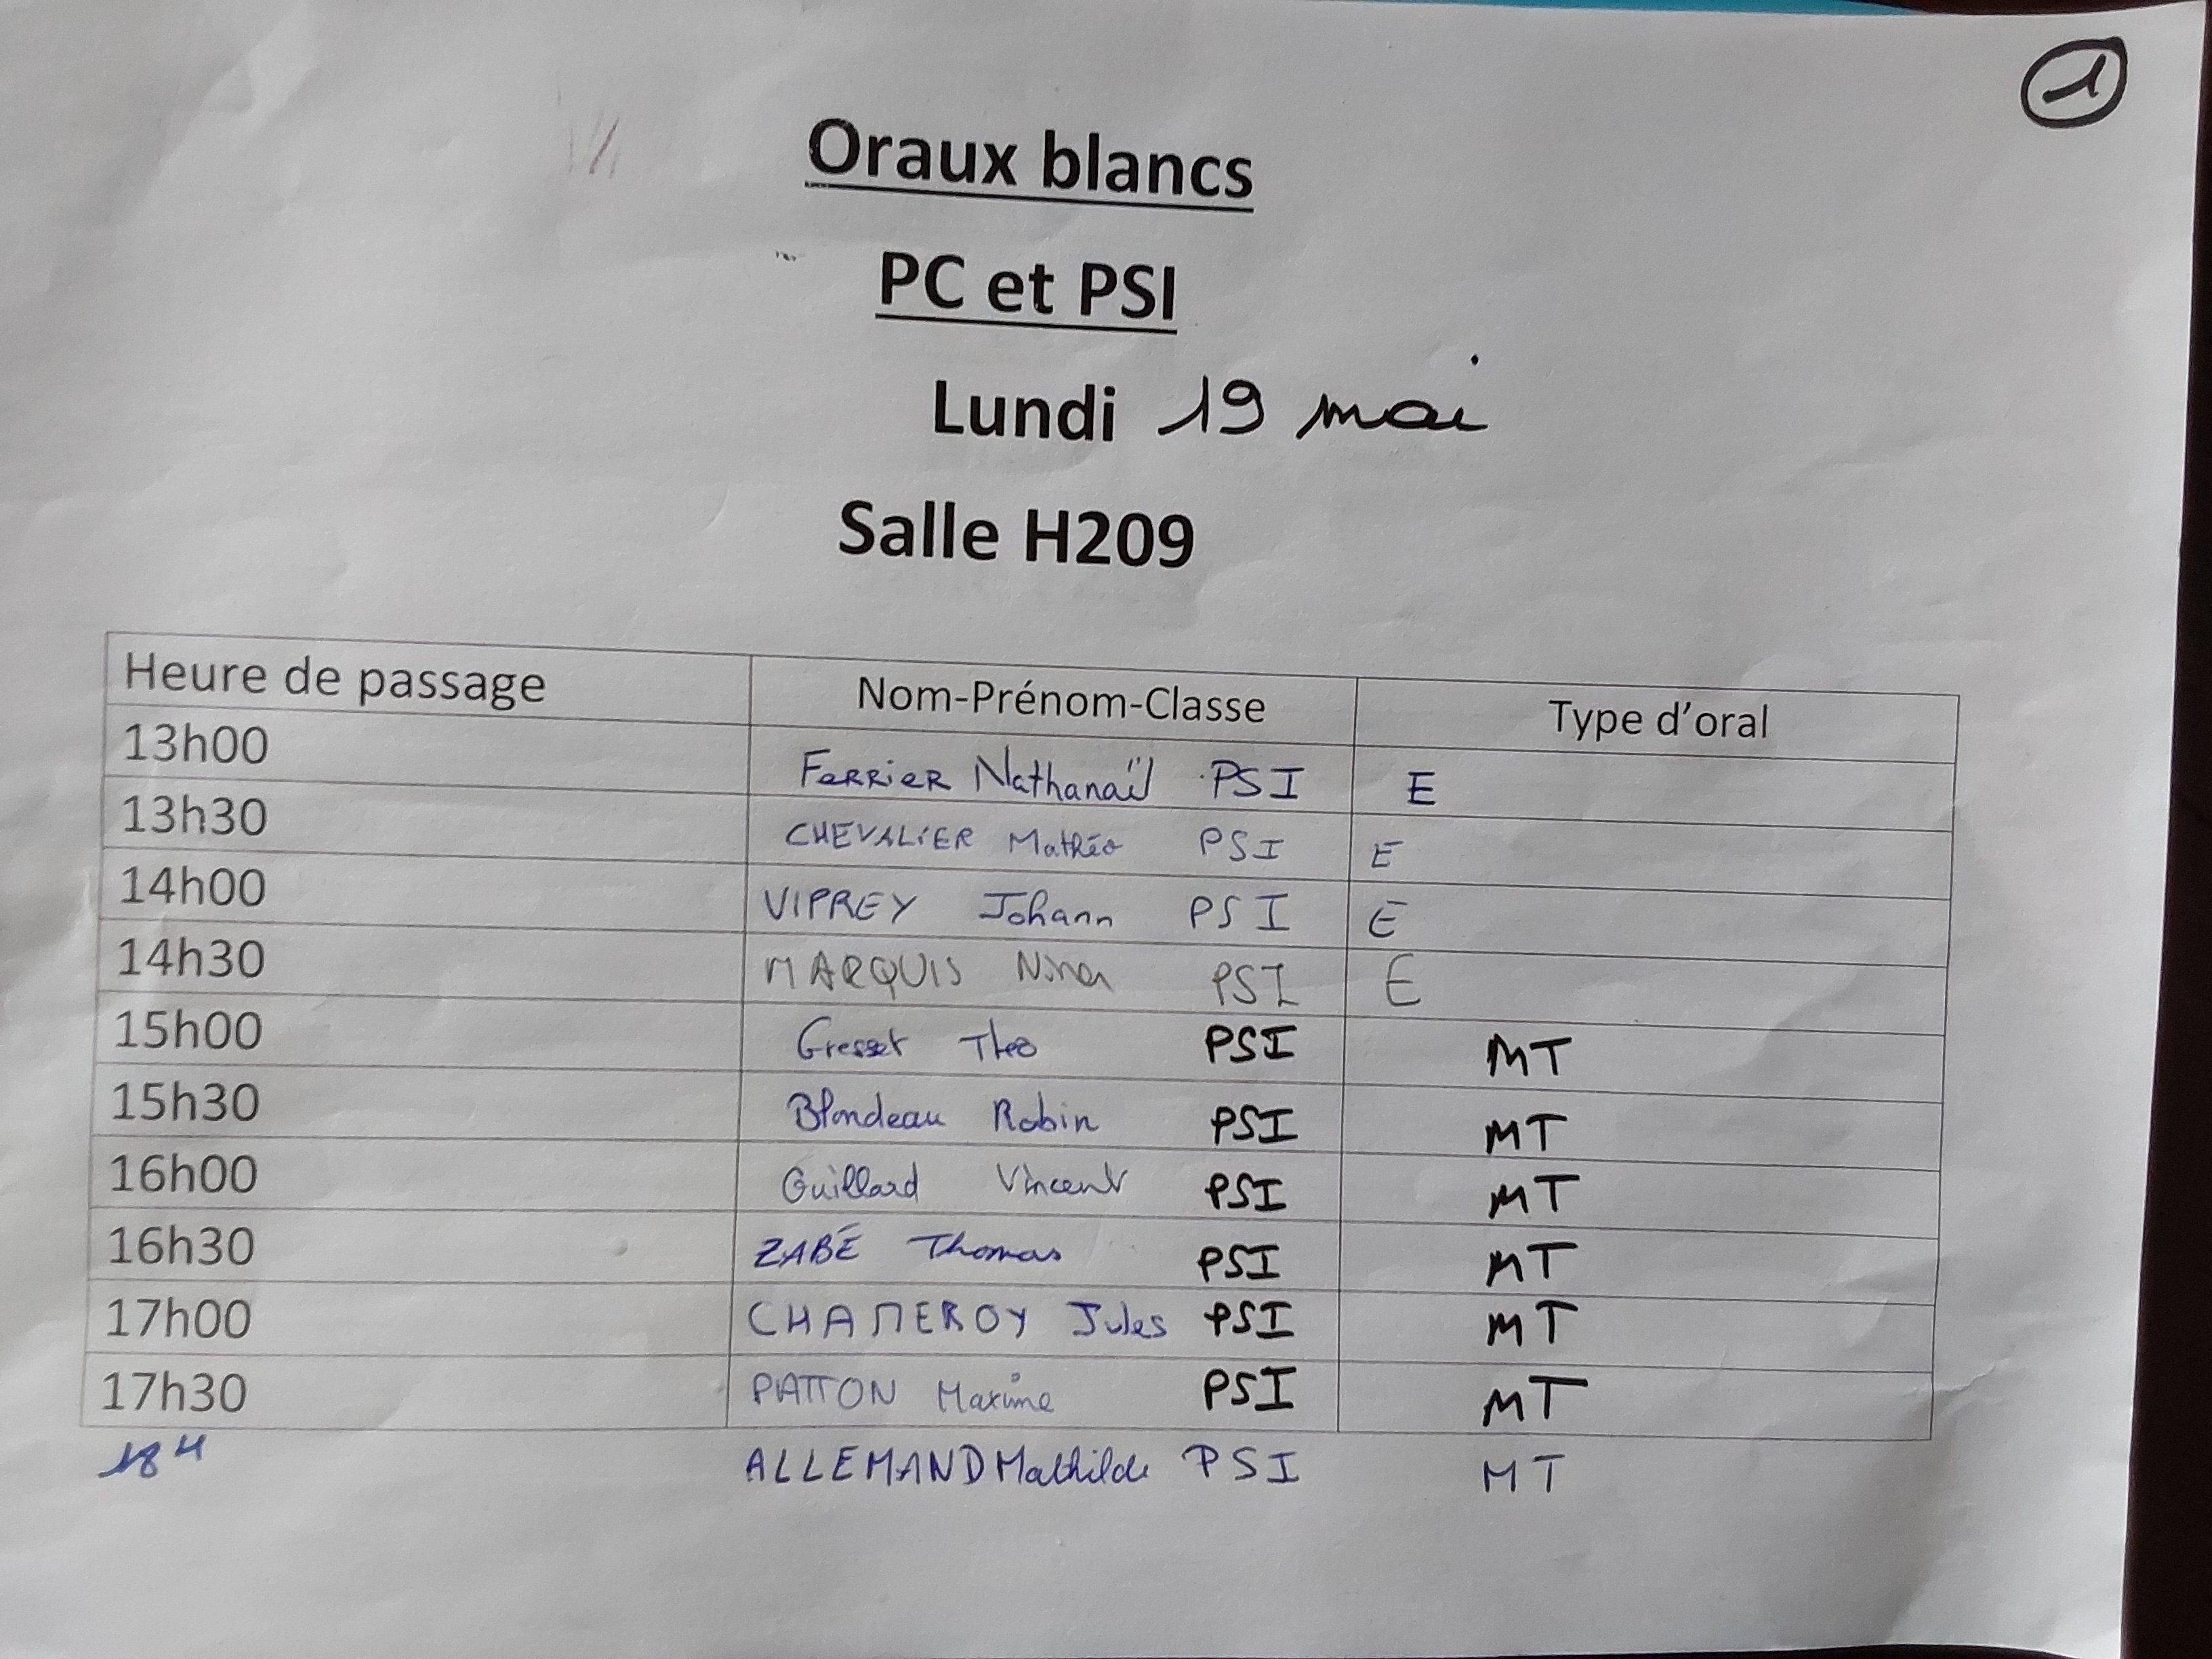 1
Oraux blancs
PC et PSI
Lundi 19 mai
Salle H209
Heure de passage Nom-Prénom-Classe Type d'oral
13h00 Ferrier Nathanaël PSI E
13h30 CHEVALIER Mathéo PSI E
14h00 VIPREY Johann PSI E
14h30 MARQUIS Nina PSI E
15h00 Gresset Theo PSI MT
15h30 Blondeau Robin PSI MT
16h00 Guillard Vincent PSI MT
16h30 ZABÉ Thomas PSI MT
17h00 CHAMEROY Jules PSI MT
17h30 PATTON Maxime PSI MT
18H ALLEMAND Mathilde PSI MT